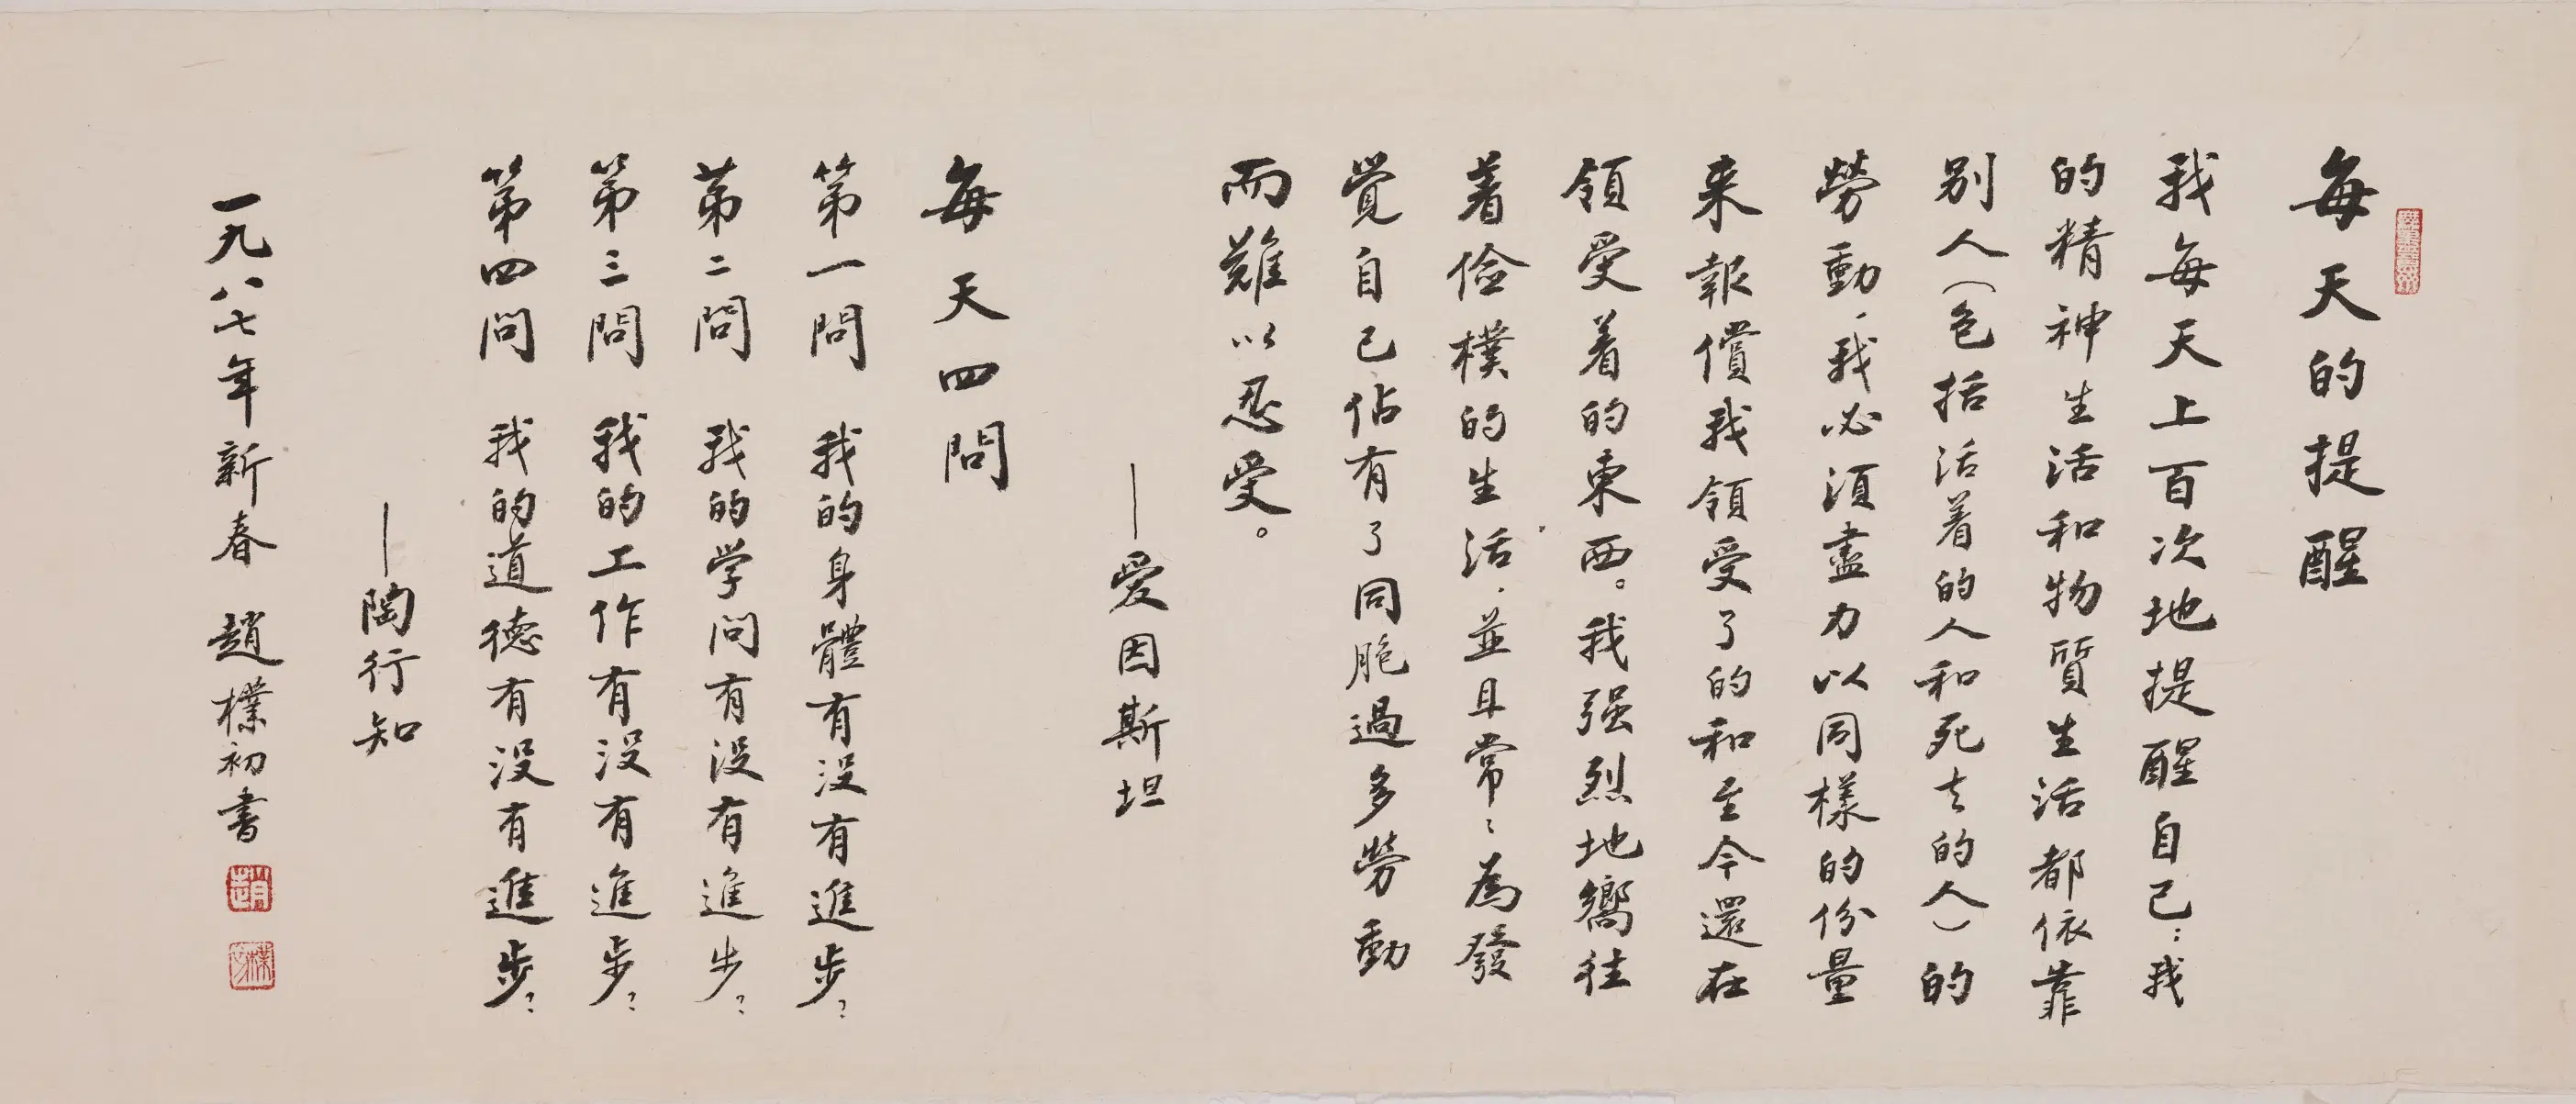 每天的提醒
我每天上百次地提醒自己：我
的精神生活和物質生活都依靠
别人（包括活着的人和死去的人）的
勞動，我必须盡力以同樣的份量
来報償我領受了的和至今還在
領受着的東西。我强烈地嚮往
着儉樸的生活，並且常〻為發
覺自己佔有了同胞過多勞動
而難以忍受。
—愛因斯坦
每天四問
第一問 我的身體有没有進步？
第二問 我的学問有没有進步？
第三問 我的工作有没有進步？
第四問 我的道德有没有進步？
—陶行知
一九八七年新春 趙樸初書
趙
樸初